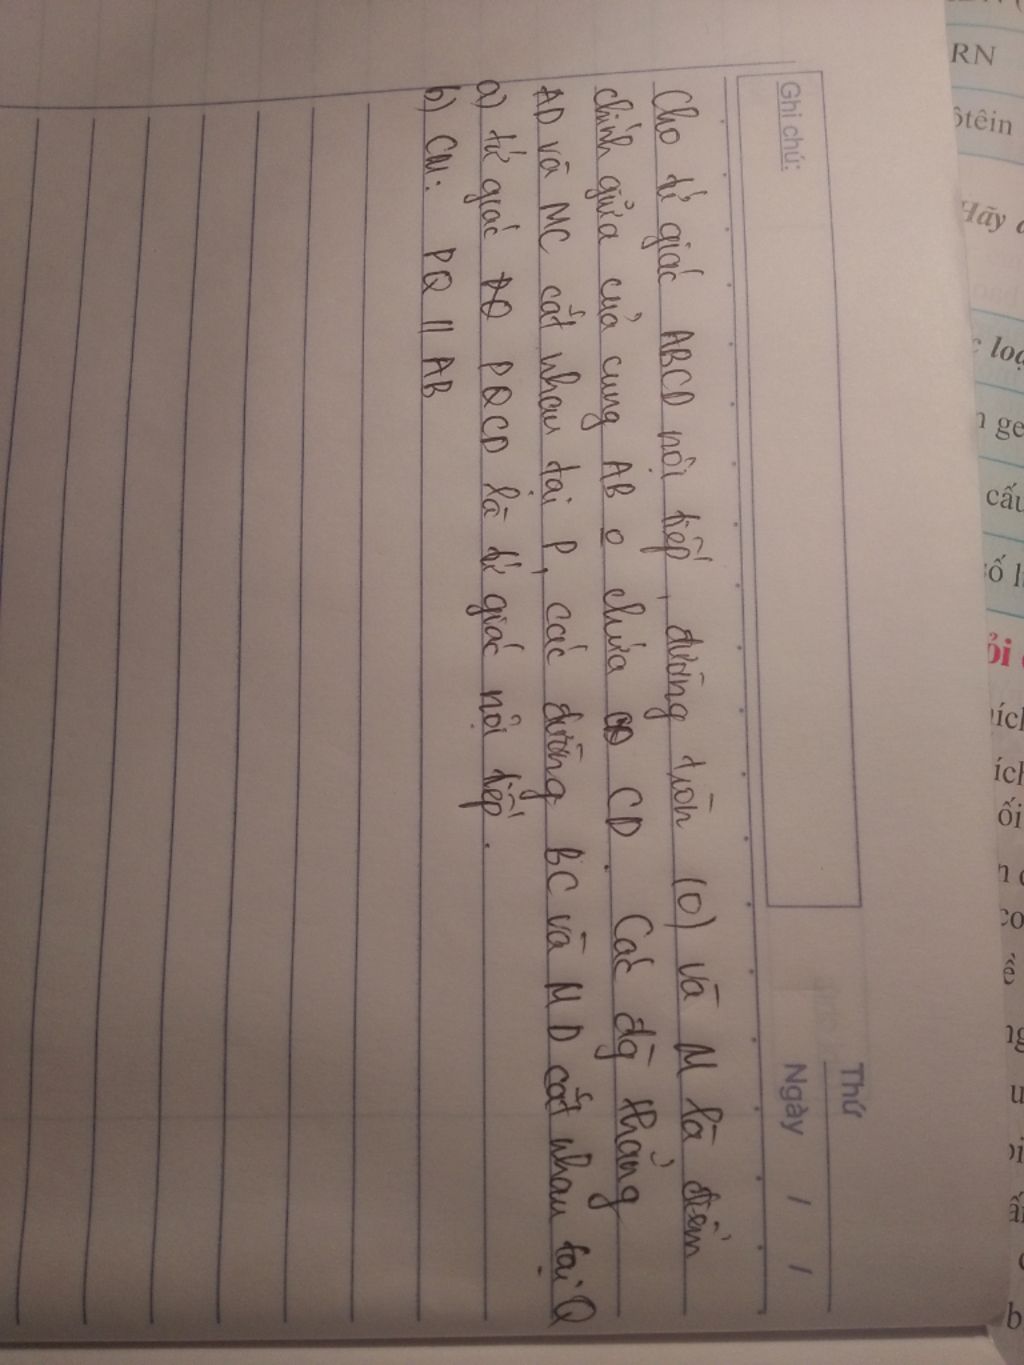 Ghi chú:
Thứ
Ngày / /
Cho tứ giác ABCD nội tiếp, đường tròn (O) và M là điểm
chính giữa của cung AB o chứa CD. Các đg thẳng
AD và MC cắt nhau tại P, các đường BC và MD cắt nhau tại Q
a) tứ giác PQCD là tứ giác nội tiếp.
b) CM: PQ // AB
RN
ôtêin
Hãy
loạ
ge
cấu
số